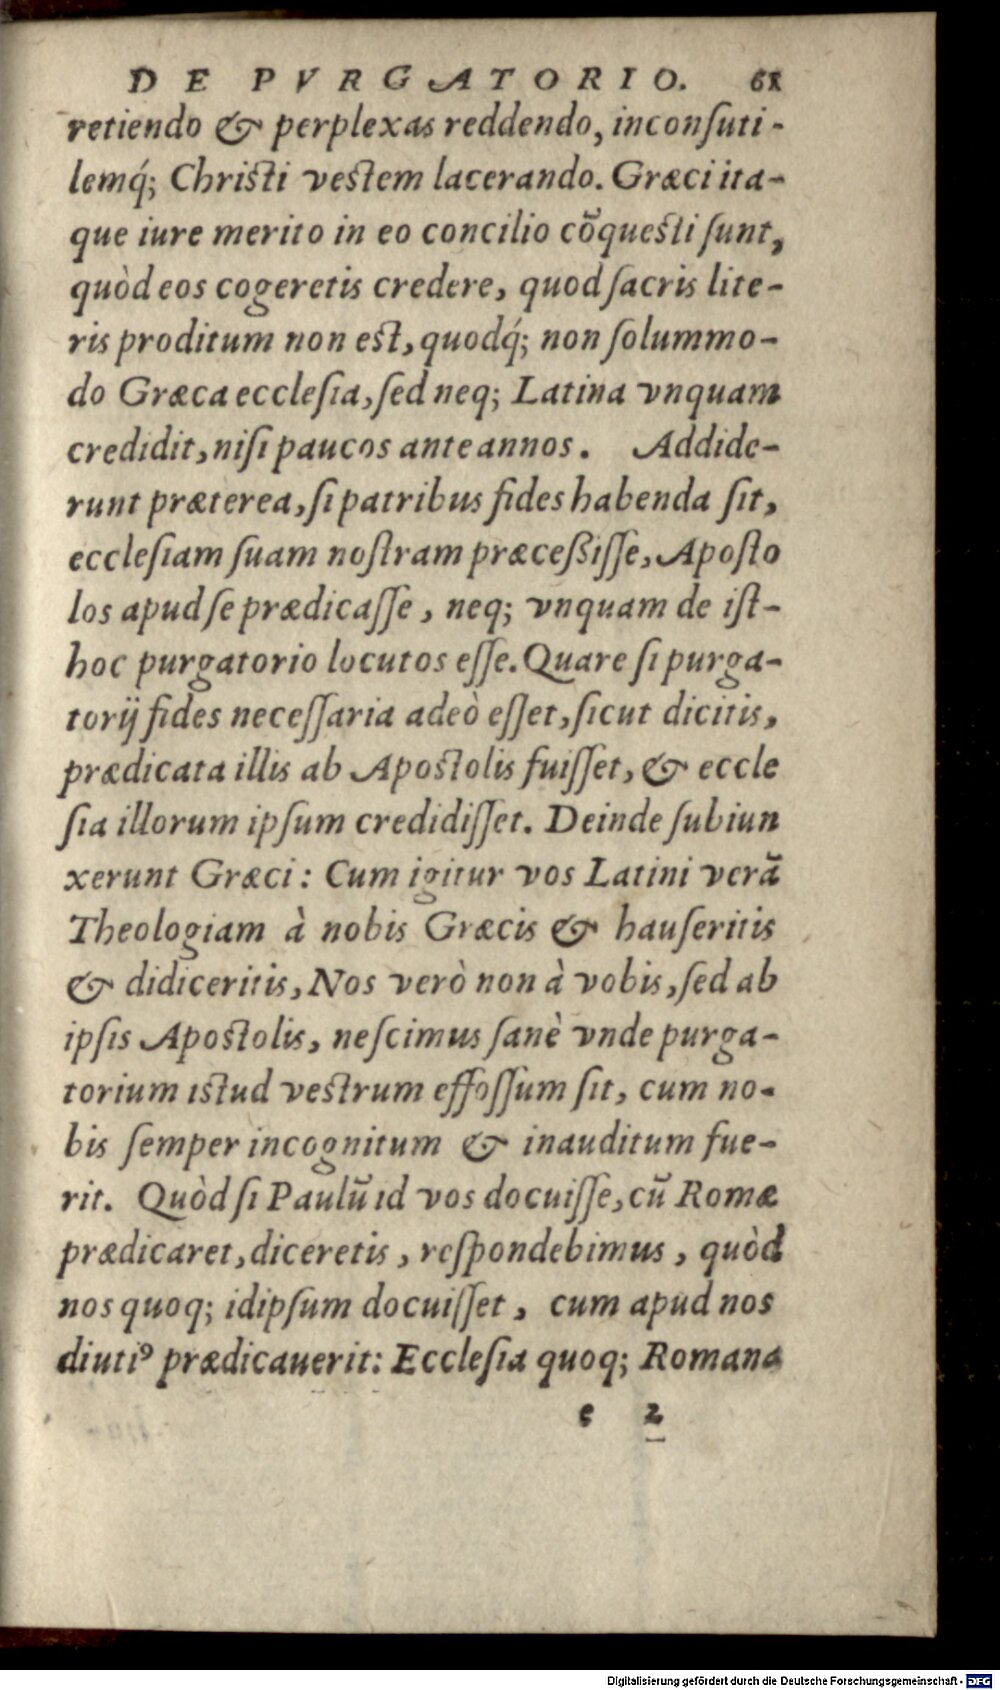 DE PVRGATORIO. 61
retiendo & perplexas reddendo, inconſuti-
lemq́; Chriſti veſtem lacerando. Græci ita-
que iure merito in eo concilio cõqueſti ſunt,
quòd eos cogeretis credere, quod ſacris lite-
ris proditum non eſt, quodq́; non ſolummo-
do Græca eccleſia, ſed neq; Latina vnquam
credidit, niſi paucos ante annos. Addide-
runt præterea, ſi patribus fides habenda ſit,
eccleſiam ſuam noſtram præceßiſſe, Apoſto
los apud ſe prædicaſſe, neq; vnquam de iſt-
hoc purgatorio locutos eſſe. Quare ſi purga-
torij fides neceſſaria adeò eſſet, ſicut dicitis,
prædicata illis ab Apoſtolis fuiſſet, & eccle
ſia illorum ipſum credidiſſet. Deinde ſubiun
xerunt Græci: Cum igitur vos Latini verã
Theologiam à nobis Græcis & hauſeritis
& didiceritis, Nos verò non à vobis, ſed ab
ipſis Apoſtolis, neſcimus ſanè vnde purga-
torium iſtud veſtrum effoſſum ſit, cum no-
bis ſemper incognitum & inauditum fue-
rit. Quòd ſi Paulũ id vos docuiſſe, cũ Romæ
prædicaret, diceretis, reſpondebimus, quòd
nos quoq; idipſum docuiſſet, cum apud nos
diutiꝰ prædicauerit: Eccleſia quoq; Romana
e 2
Digitalisierung gefördert durch die Deutsche Forschungsgemeinschaft - DFG